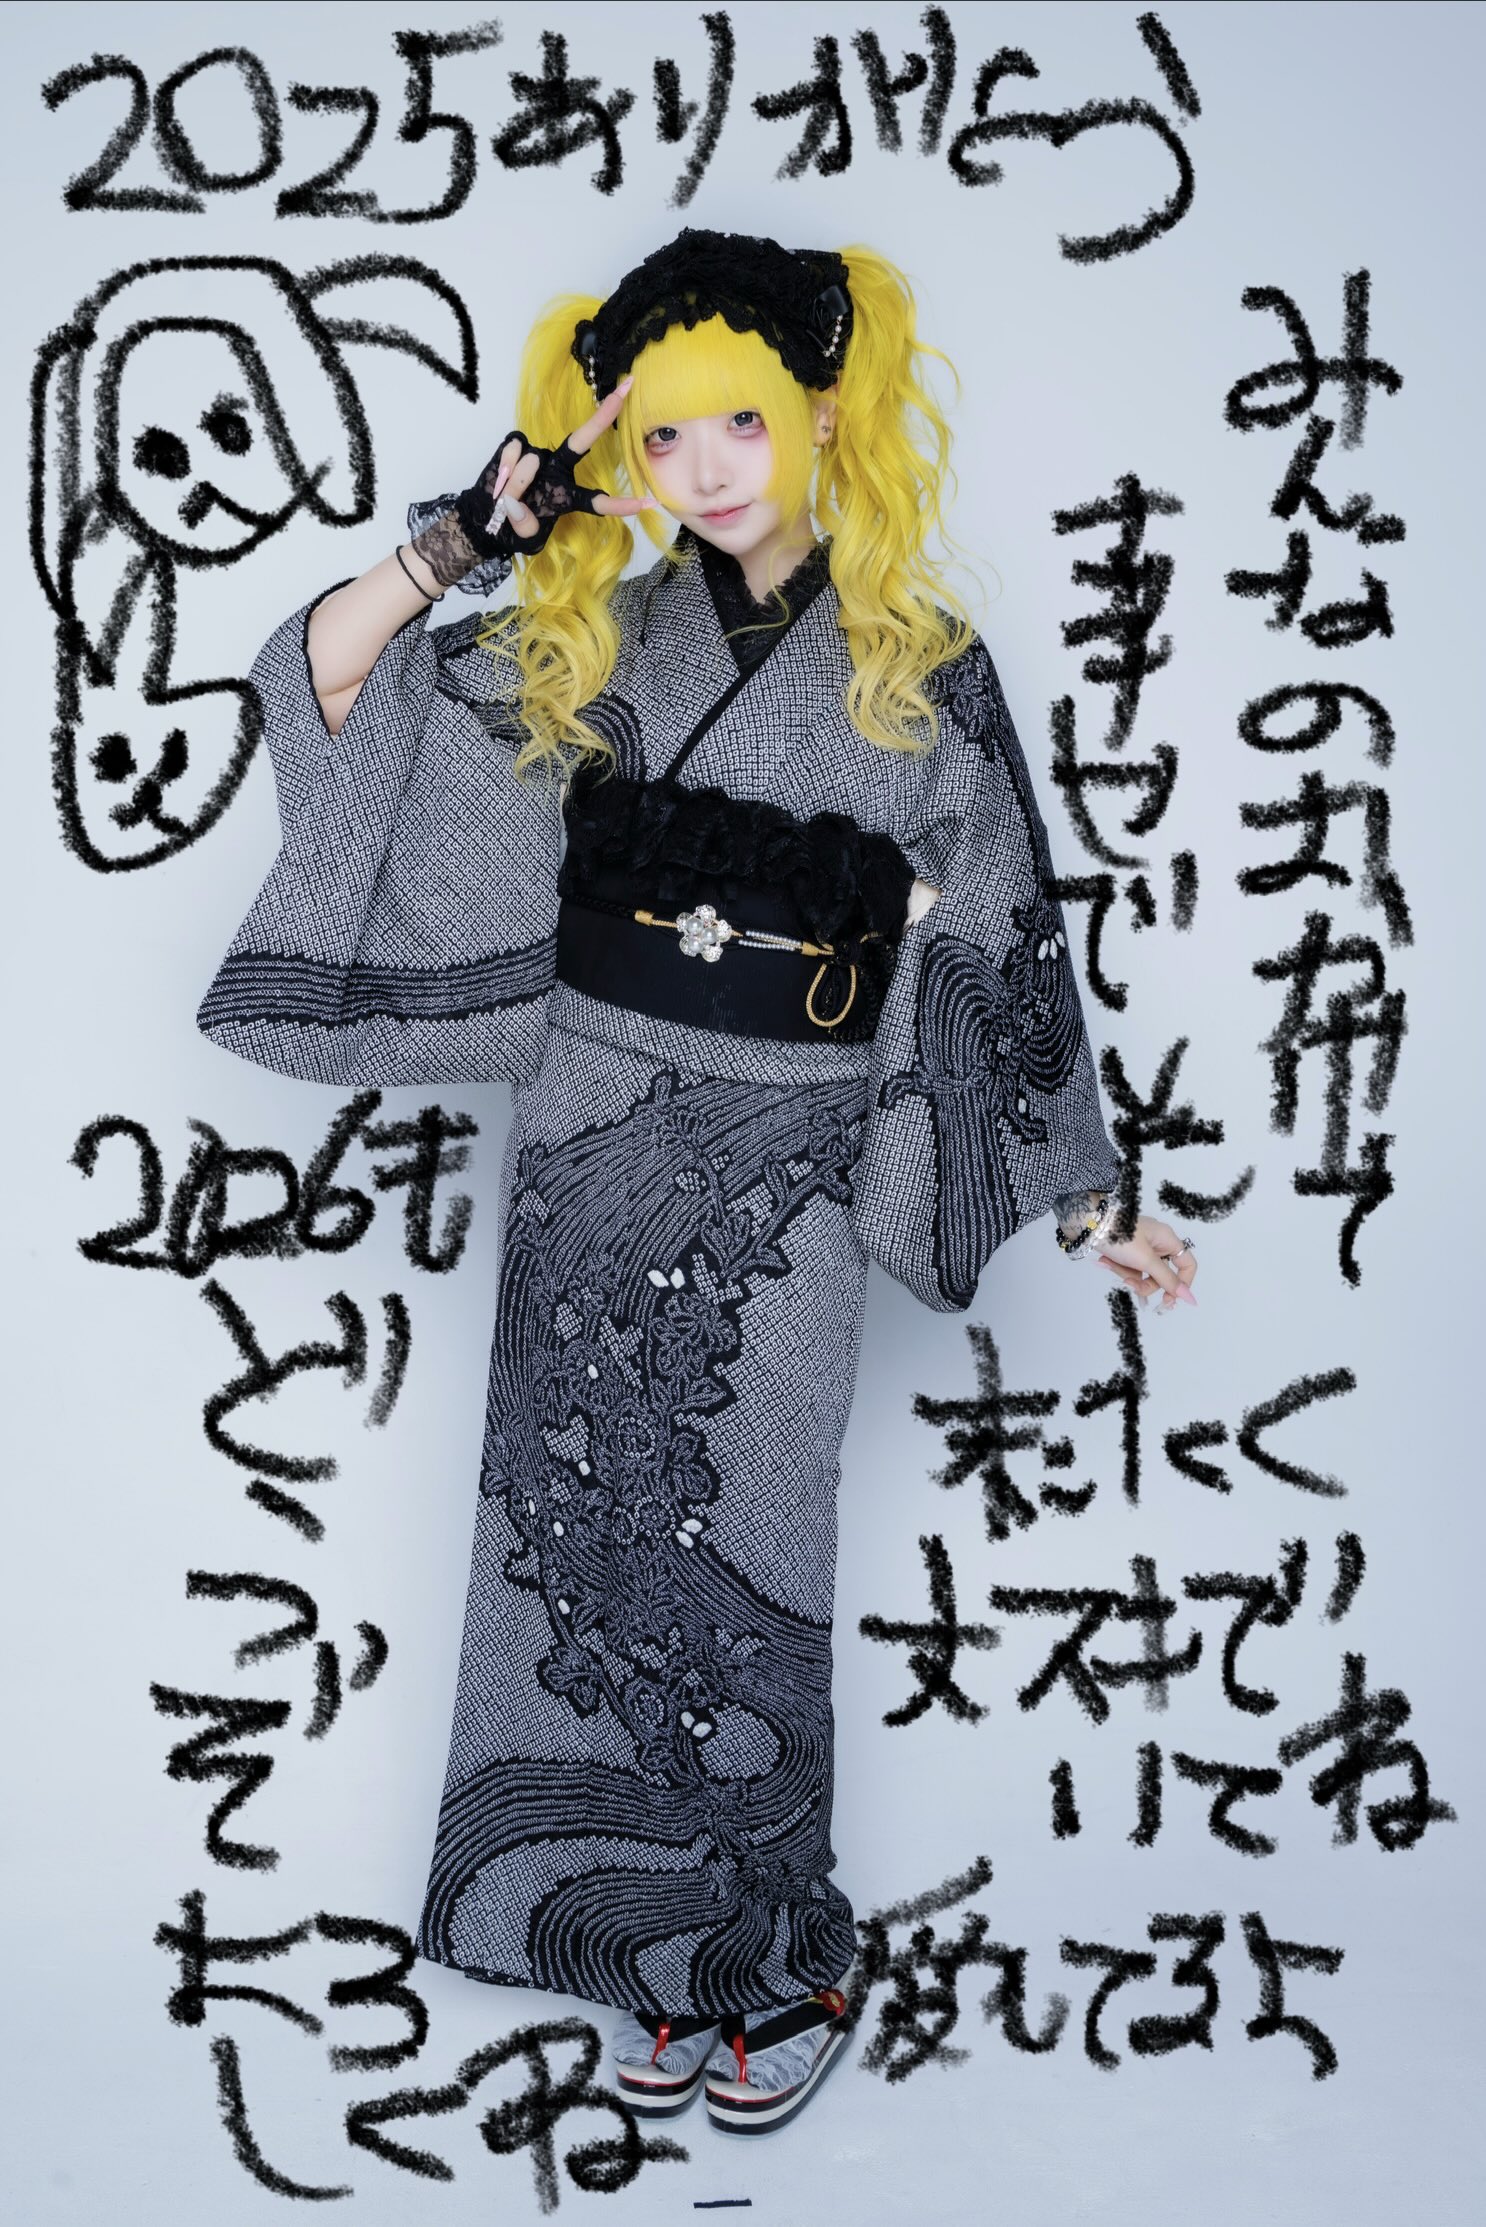 2025ありがとう
みんなのお陰で
幸せでした
末なく
大好きでいてね
愛してるよ
2026も
どうぞ
よろ
しくね